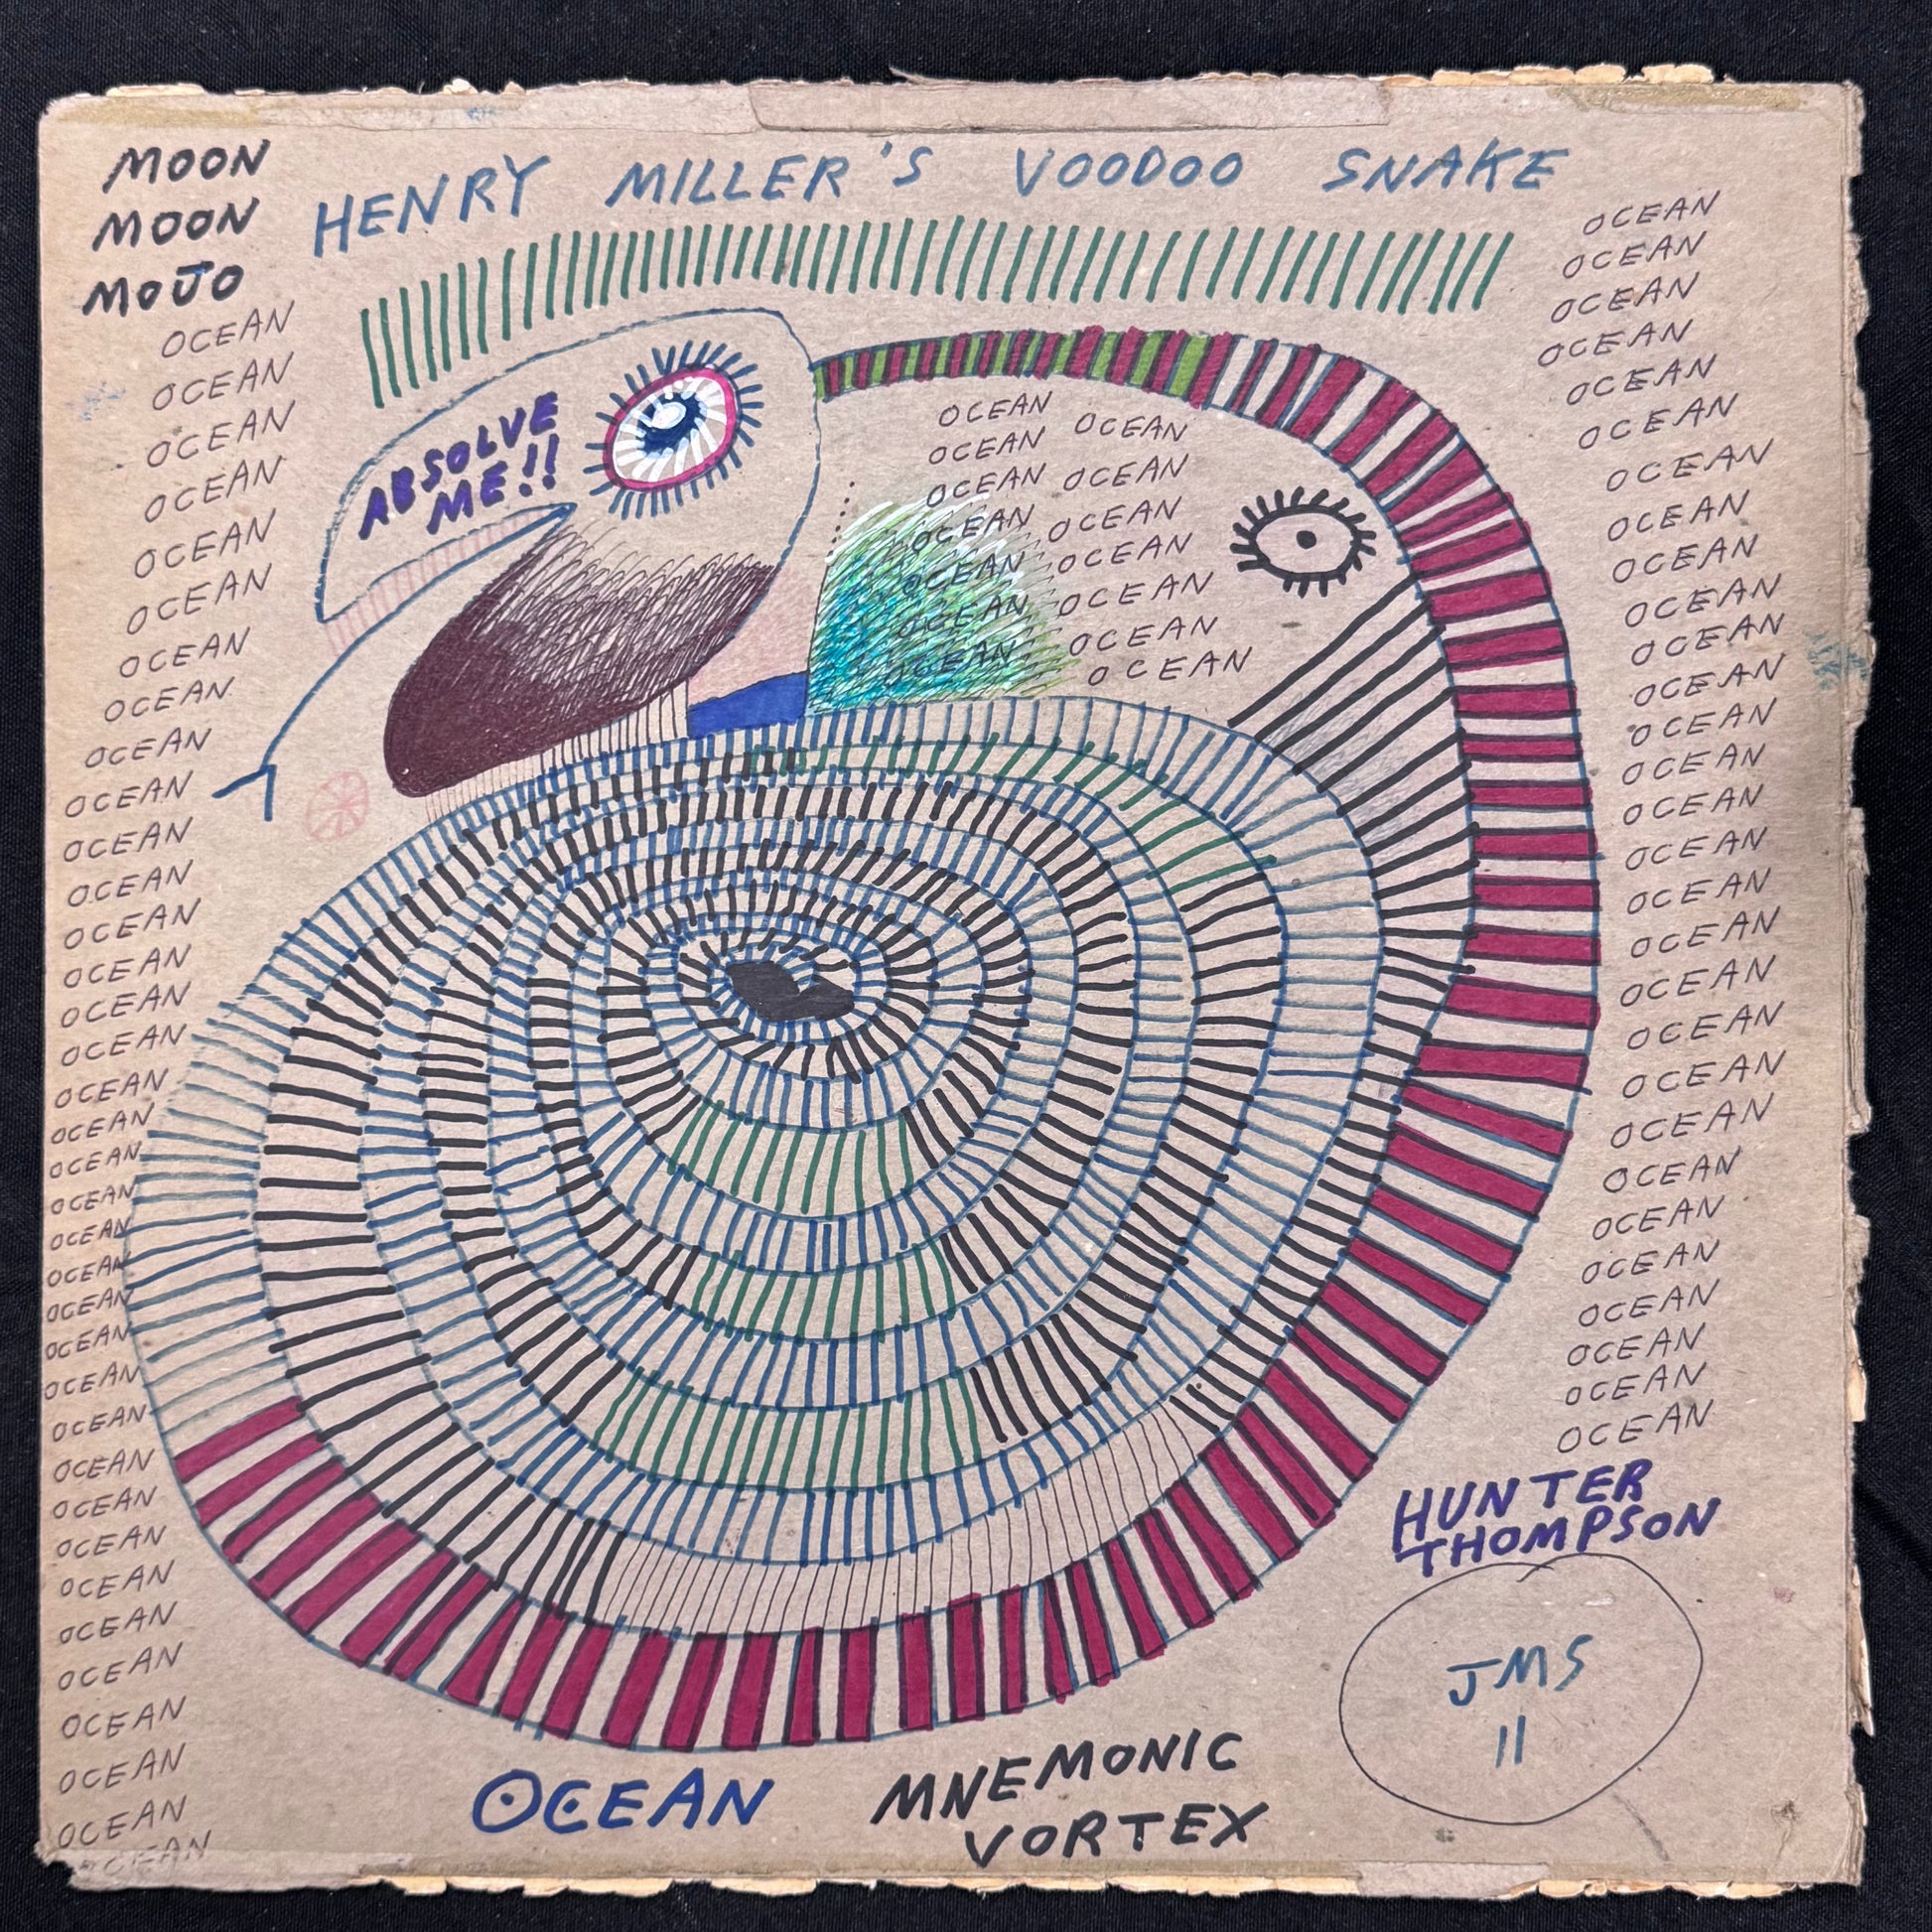 MOON
MOON
MOJO
HENRY MILLER'S VOODOO SNAKE
OCEAN
OCEAN
OCEAN
OCEAN
OCEAN
OCEAN
OCEAN
OCEAN
OCEAN
OCEAN
OCEAN
OCEAN
OCEAN
OCEAN
OCEAN
OCEAN
OCEAN
OCEAN
OCEAN
OCEAN
OCEAN
OCEAN
OCEAN
OCEAN
OCEAN
OCEAN
OCEAN
OCEAN
OCEAN
OCEAN
OCEAN
OCEAN
OCEAN
OCEAN
OCEAN
OCEAN
ABSOLVE
ME!!
OCEAN
OCEAN OCEAN
OCEAN OCEAN
OCEAN OCEAN
OCEAN OCEAN
OCEAN OCEAN
OCEAN OCEAN
OCEAN
OCEAN
OCEAN
OCEAN
OCEAN
OCEAN
OCEAN
OCEAN
OCEAN
OCEAN
OCEAN
OCEAN
OCEAN
OCEAN
OCEAN
OCEAN
OCEAN
OCEAN
OCEAN
OCEAN
OCEAN
OCEAN
OCEAN
OCEAN
OCEAN
OCEAN
OCEAN
OCEAN
OCEAN
OCEAN
HUNTER
THOMPSON
JMS
11
OCEAN
MNEMONIC
VORTEX